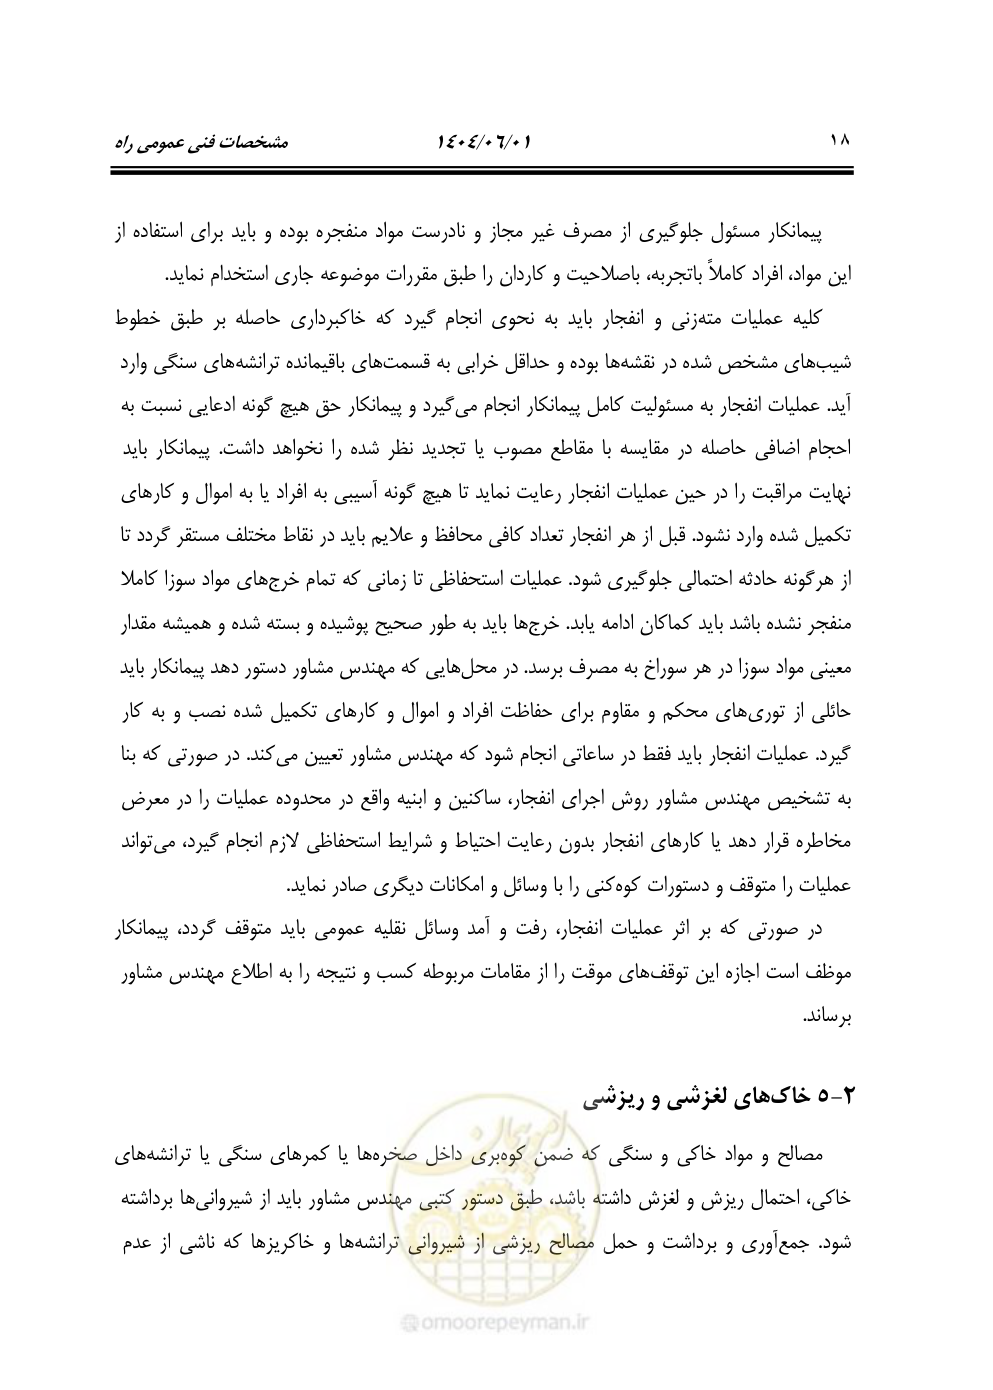 ۱۸ ۱۴۰۴/۰۶/۰۱ مشخصات فنی عمومی راه
پیمانکار مسئول جلوگیری از مصرف غیر مجاز و نادرست مواد منفجره بوده و باید برای استفاده از
این مواد، افراد کاملاً باتجربه، باصلاحیت و کاردان را طبق مقررات موضوعه جاری استخدام نماید.
کلیه عملیات مته‌زنی و انفجار باید به نحوی انجام گیرد که خاکبرداری حاصله بر طبق خطوط
شیب‌های مشخص شده در نقشه‌ها بوده و حداقل خرابی به قسمت‌های باقیمانده ترانشه‌های سنگی وارد
آید. عملیات انفجار به مسئولیت کامل پیمانکار انجام می‌گیرد و پیمانکار حق هیچ گونه ادعایی نسبت به
احجام اضافی حاصله در مقایسه با مقاطع مصوب یا تجدید نظر شده را نخواهد داشت. پیمانکار باید
نهایت مراقبت را در حین عملیات انفجار رعایت نماید تا هیچ گونه آسیبی به افراد یا به اموال و کارهای
تکمیل شده وارد نشود. قبل از هر انفجار تعداد کافی محافظ و علایم باید در نقاط مختلف مستقر گردد تا
از هرگونه حادثه احتمالی جلوگیری شود. عملیات استحفاظی تا زمانی که تمام خرج‌های مواد سوزا کاملا
منفجر نشده باشد باید کماکان ادامه یابد. خرج‌ها باید به طور صحیح پوشیده و بسته شده و همیشه مقدار
معینی مواد سوزا در هر سوراخ به مصرف برسد. در محل‌هایی که مهندس مشاور دستور دهد پیمانکار باید
حائلی از توری‌های محکم و مقاوم برای حفاظت افراد و اموال و کارهای تکمیل شده نصب و به کار
گیرد. عملیات انفجار باید فقط در ساعاتی انجام شود که مهندس مشاور تعیین می‌کند. در صورتی که بنا
به تشخیص مهندس مشاور روش اجرای انفجار، ساکنین و ابنیه واقع در محدوده عملیات را در معرض
مخاطره قرار دهد یا کارهای انفجار بدون رعایت احتیاط و شرایط استحفاظی لازم انجام گیرد، می‌تواند
عملیات را متوقف و دستورات کوه‌کنی را با وسائل و امکانات دیگری صادر نماید.
در صورتی که بر اثر عملیات انفجار، رفت و آمد وسائل نقلیه عمومی باید متوقف گردد، پیمانکار
موظف است اجازه این توقف‌های موقت را از مقامات مربوطه کسب و نتیجه را به اطلاع مهندس مشاور
برساند.
۲-۵ خاک‌های لغزشی و ریزشی
مصالح و مواد خاکی و سنگی که ضمن کوه‌بری داخل صخره‌ها یا کمرهای سنگی یا ترانشه‌های
خاکی، احتمال ریزش و لغزش داشته باشد، طبق دستور کتبی مهندس مشاور باید از شیروانی‌ها برداشته
شود. جمع‌آوری و برداشت و حمل مصالح ریزشی از شیروانی ترانشه‌ها و خاکریزها که ناشی از عدم
امور پیمان
@omoorepeyman.ir